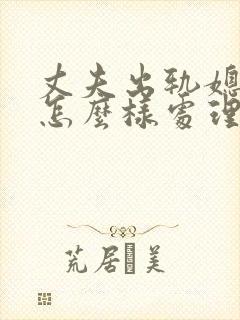 丈夫出轨媳
怎麼樣處理
荒居 美